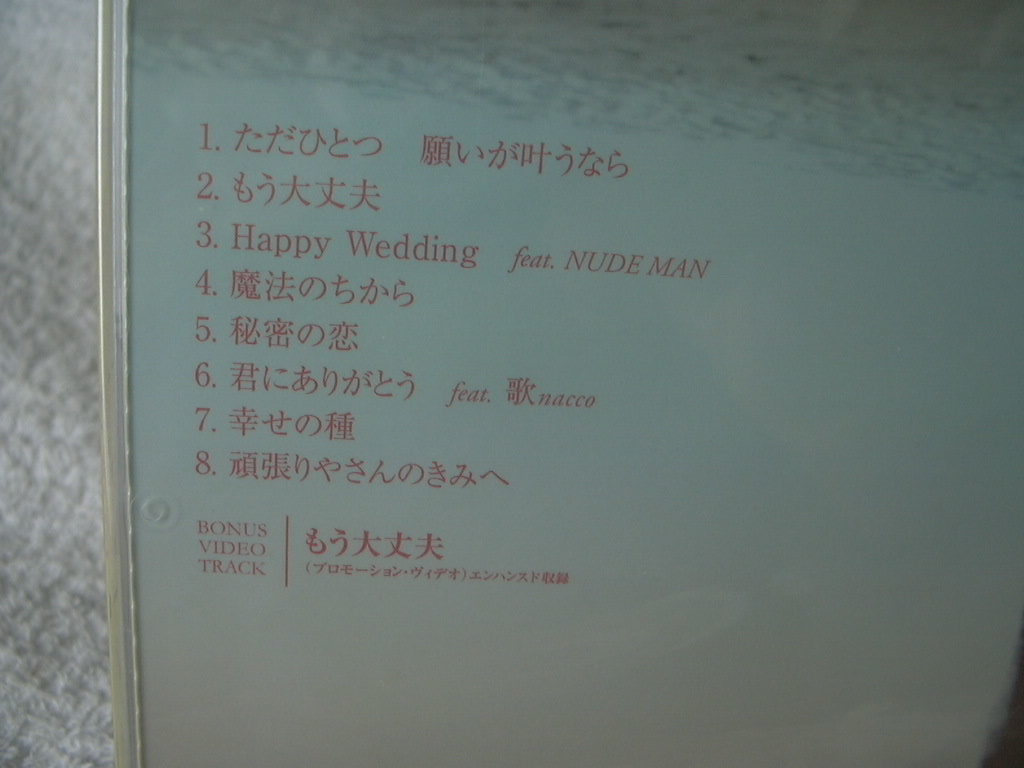 1. ただひとつ　願いが叶うなら
2. もう大丈夫
3. Happy Wedding feat. NUDE MAN
4. 魔法のちから
5. 秘密の恋
6. 君にありがとう feat. 歌nacco
7. 幸せの種
8. 頑張りやさんのきみへ
BONUS
VIDEO
TRACK
もう大丈夫
(プロモーション・ヴィデオ)エンハンスド収録